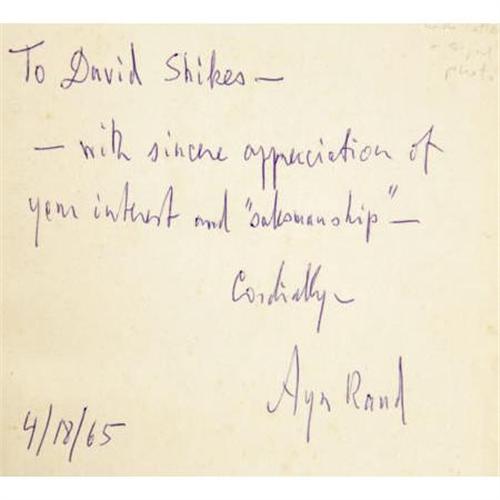 To David Shikes —
— with sincere appreciation of
your interest and "salesmanship" —
Cordially —
Ayn Rand
4/18/65
photo